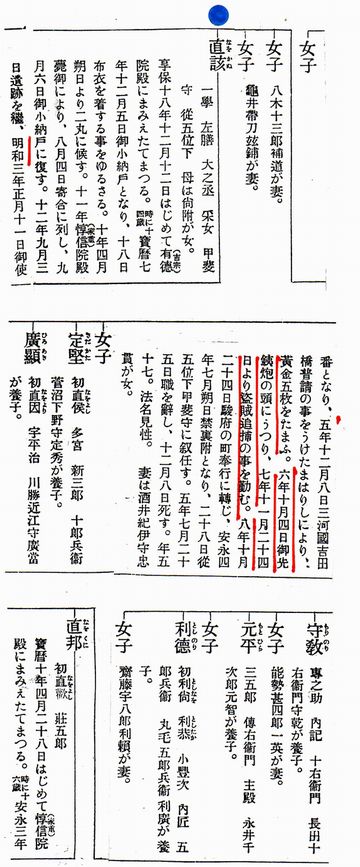 女子
女子 八木十三郎補道が妻。
女子 龜井帶刀玆鋪が妻。
直該 なをかね
一學 左膳 大之丞 采女 甲斐
守 從五位下 母は尙附が女。
享保十八年十二月十二日はじめて有德(吉宗)
院殿にまみえたてまつる。時に十四歲 寶曆七
年十二月五日御小納戶となり、十八日
布衣を着する事をゆるさる。十年四月
朔日より二丸に候す。十一年惇信院殿(家重)
薨御により、八月四日寄合に列し、九
月六日御小納戶に復す。十二年九月三
日遺跡を繼、明和三年正月十一日御使
番となり、五年十二月八日三河國吉田
橋普請の事をうけたまはりしにより、
黃金五枚をたまふ。六年十月四日御先
鐵炮の頭にうつり、七年十一月二十四
日より盜賊追捕の事を勤む。八年十月
二十四日駿府の町奉行に轉じ、安永四
年七月朔日禁裏附となり、二十八日從
五位下甲斐守に叙任す。五年七月二十
五日職を辭し、十二月八日死す。年五
十七。法名見性。 妻は酒井紀伊守忠
貫が女。
女子
定堅 さだかた
初直侯 なをよし 多宮 新三郎 十郎兵衞
菅沼下野守定秀が養子。
廣顯 ひろあき
初直因 なをよし 宇平治 川勝近江守廣當
が養子。
守敎 もりのり
專之助 內記 十右衞門 長田十
右衞門守乾が養子。
女子 能勢甚四郎一英が妻。
元平 もとひら
三五郎 傳右衞門 主殿 永井千
次郎元智が養子。
女子
利德 としのり
初利尙 利恭 小豐次 內匠 五
郎兵衞 丸毛五郎兵衞利廣が養
子。
女子 齋藤宇八郎利賴が妻。
直邦 なをくに
初直歡 莊五郎
寶曆十年四月二十八日はじめて惇信院(家重)
殿にまみえたてまつる。時に十六歲 安永三年